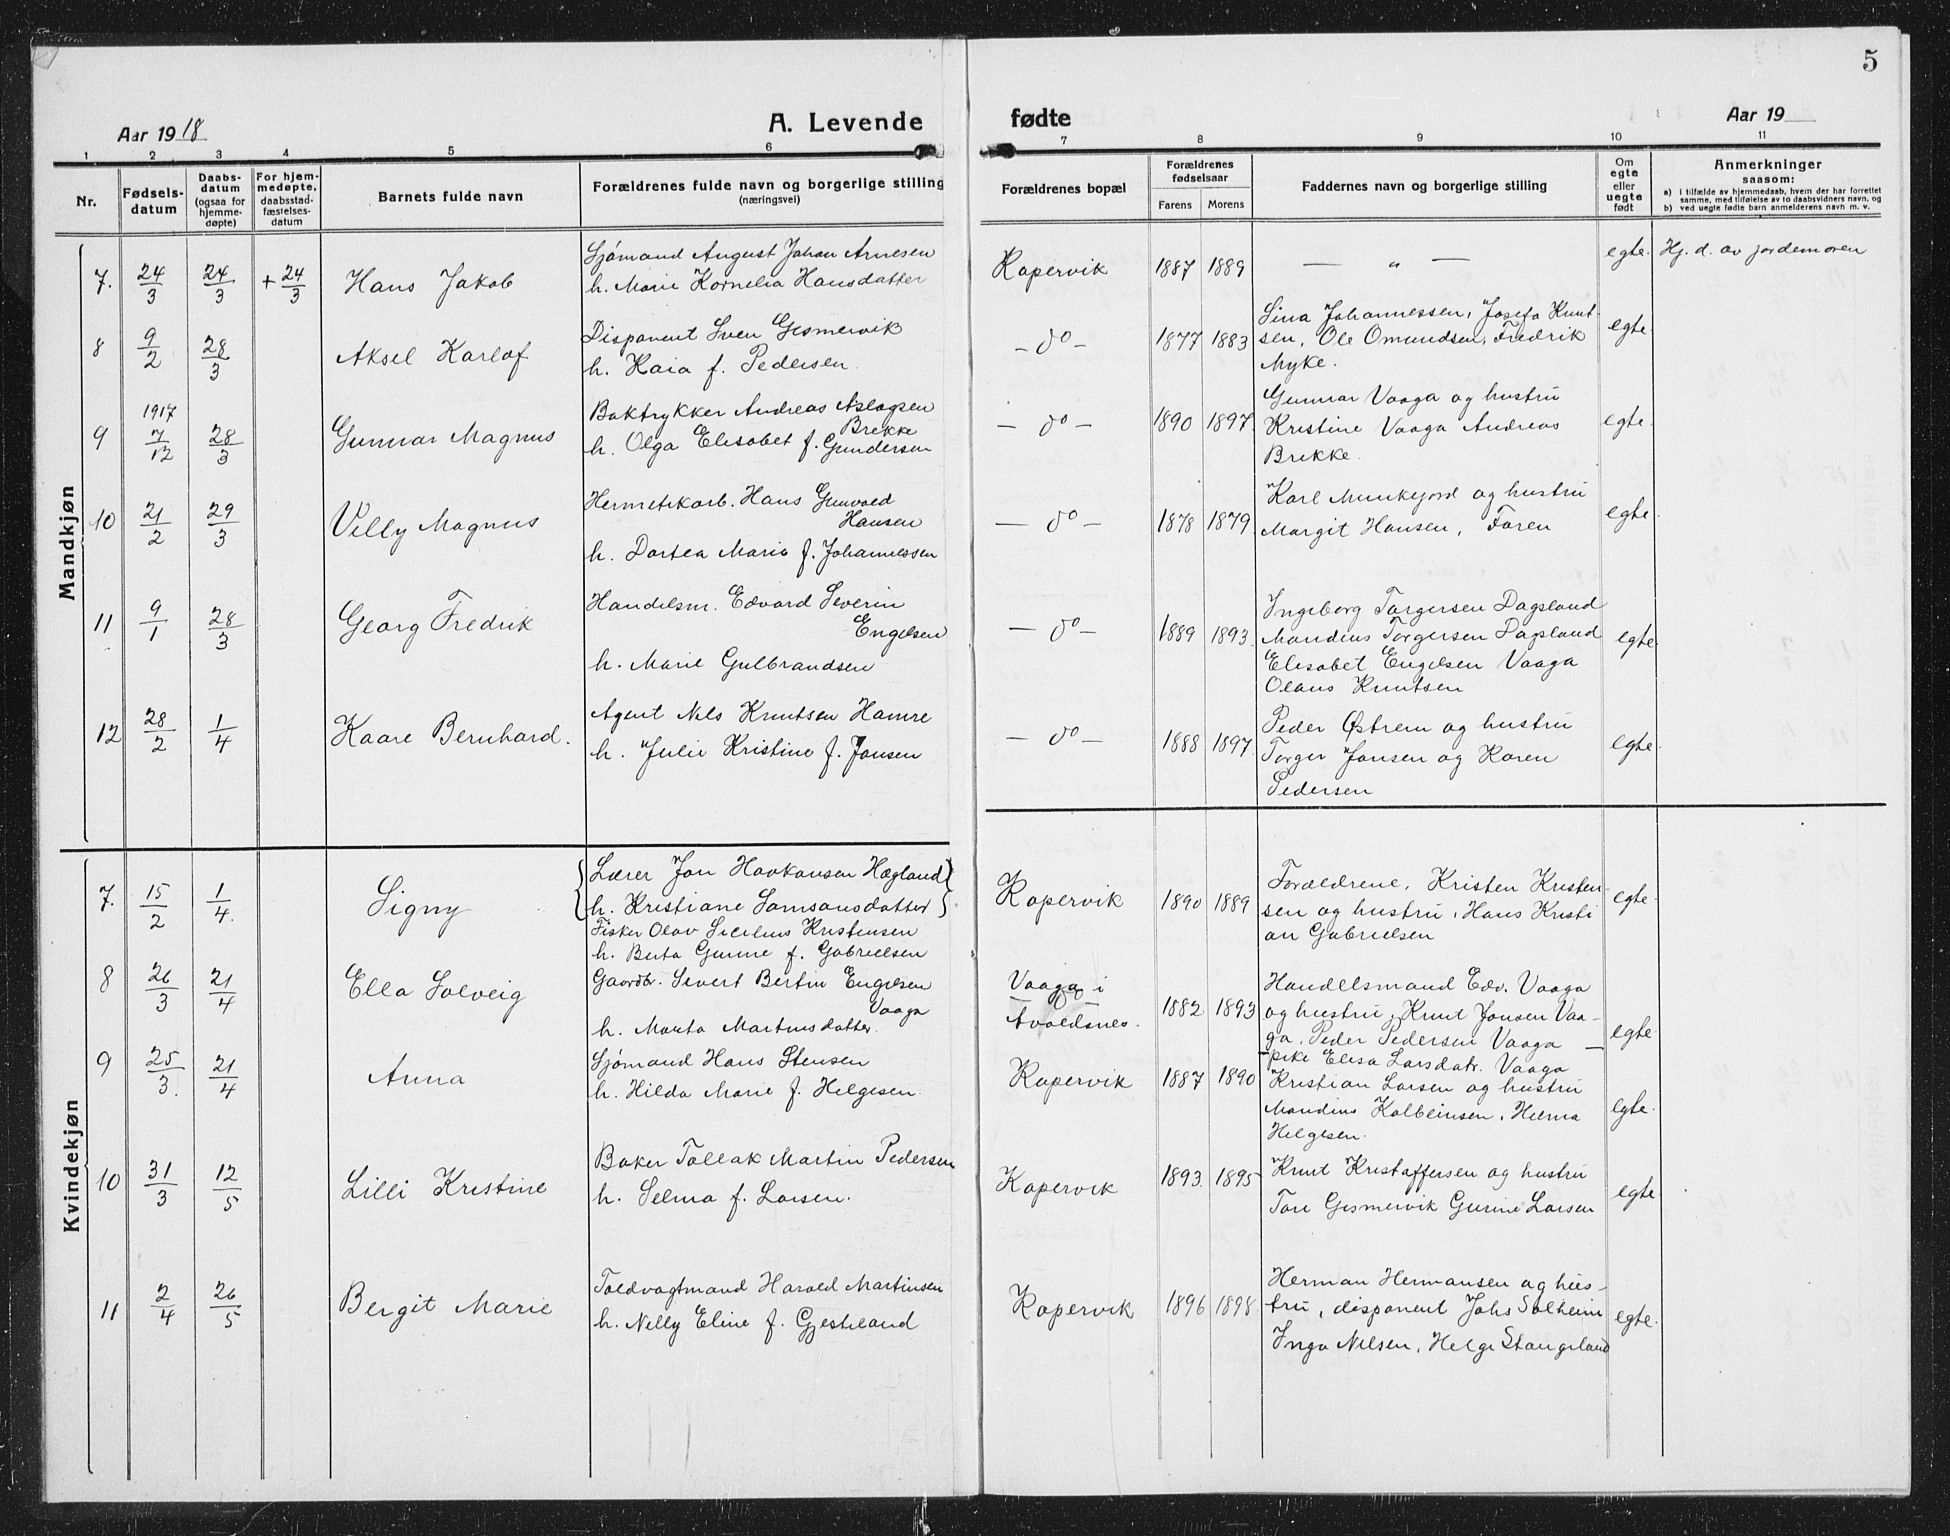 5
Aar 1918
A. Levende
fødte
Aar 19
1 2 3 4 5 6 7 8 9 10 11
Nr.
Fødsels-
datum
Daabs-
datum
(ogsaa for
hjemme-
døpte)
For hjem-
medøpte,
daabsstad-
fæstelses-
datum
Barnets fulde navn
Forældrenes fulde navn og borgerlige stilling
(næringsvei)
Forældrenes bopæl
Forældrenes
fødselsaar
Farens Morens
Faddernes navn og borgerlige stilling
Om
egte
eller
uegte
født
Anmerkninger
saasom:
a) i tilfælde av hjemmedaab, hvem der har forrettet
samme, med tilføielse av to daabsvidners navn, og
b) ved uegte fødte barn anmelderens navn m. v.
Mandkjøn
7. 24/3 24/3 + 24/3 Hans Jakob
Sjømand August Johan Arnesen
h. Marie Kornelia Hansdatter
Kopervik 1887 1889 — " — egte. Hj. d. av jordemoren
8 9/2 28/3 Aksel Karlof
Disponent Sven Gismervik
h. Kaia f. Pedersen.
— do — 1877 1883
Sina Johannessen, Josefa Knut-
sen, Ole Omundsen, Fredrik
Myke.
egte.
9 1917 7/12 28/3 Gunnar Magnus
Boktrykker Andreas Aslagsen
Brekke
h. Olga Elisabet f. Gundersen
— do — 1890 1897
Gunnar Vaaga og hustru
Kristine Vaaga Andreas
Brekke.
egte.
10 21/2 29/3 Villy Magnus
Hermetikarb. Hans Gunvald
Hansen
h. Dortea Marie f. Johannessen
— do — 1878 1879
Karl Munkejord og hustru
Margit Hansen, Faren
egte.
11 9/1 28/3 Georg Fredrik
Handelsm. Edvard Severin
Engelsen
h. Marie Gulbrandsen
— do — 1889 1893.
Ingeborg Torgersen Dagsland
Mandius Torgersen Dagsland
Elisabet Engelsen Vaaga
Olaus Knutsen
egte.
12 28/2 1/4 Kaare Bernhard.
Agent Nils Knutsen Hamre
h. Julie Kristine f. Jonsen
— do — 1888 1897
Peder Østrem og hustru
Torger Jonsen og Karen
Pedersen
egte.
Kvindekjøn
7. 15/2 1/4. Signy
Lærer Jon Haakonsen Hægland
h. Kristiane Samsonsdatter
Fisker Olav Sicelius Kristensen
h. Berta Gurine f. Gabrielsen
Kopervik 1890 1889
Forældrene, Kristen Kristen-
sen og hustru, Hans Kristi
an Gabrielsen
egte.
8 26/3 21/4 Ella Solveig
Gaardbr. Sivert Bertin Engelsen
Vaaga
h. Marta Martinsdatter.
Vaaga i
Avaldsnes. 1882 1893
Handelsmand Edv. Vaaga
og hustru, Knut Jonsen Vaa-
ga, Peder Pedersen Vaaga —
pike Elisa Larsdatr. Vaaga
egte
9 25/3. 21/4 Anna
Sjømand Hans Stensen
h. Hilda Marie f. Helgesen.
Kopervik 1887 1890
Kristian Larsen og hustru
Mandius Kolbeinsen, Helma
Helgesen.
egte.
10 31/3 12/5 Lilli Kristine
Baker Tollak Martin Pedersen
h. Selma f. Larsen.
Kopervik 1893. 1895
Knut Kristoffersen og hustru
Tore Gismervik Gurine Larsen
egte
11 2/4 26/5 Bergit Marie
Toldvagtmand Harald Martinsen
h. Nelly Eline f. Gjesteland
Kopervik 1896 1898
Herman Hermansen og hus-
tru, disponent Johs Solheim
Inga Nilsen, Helge Stangeland
egte.